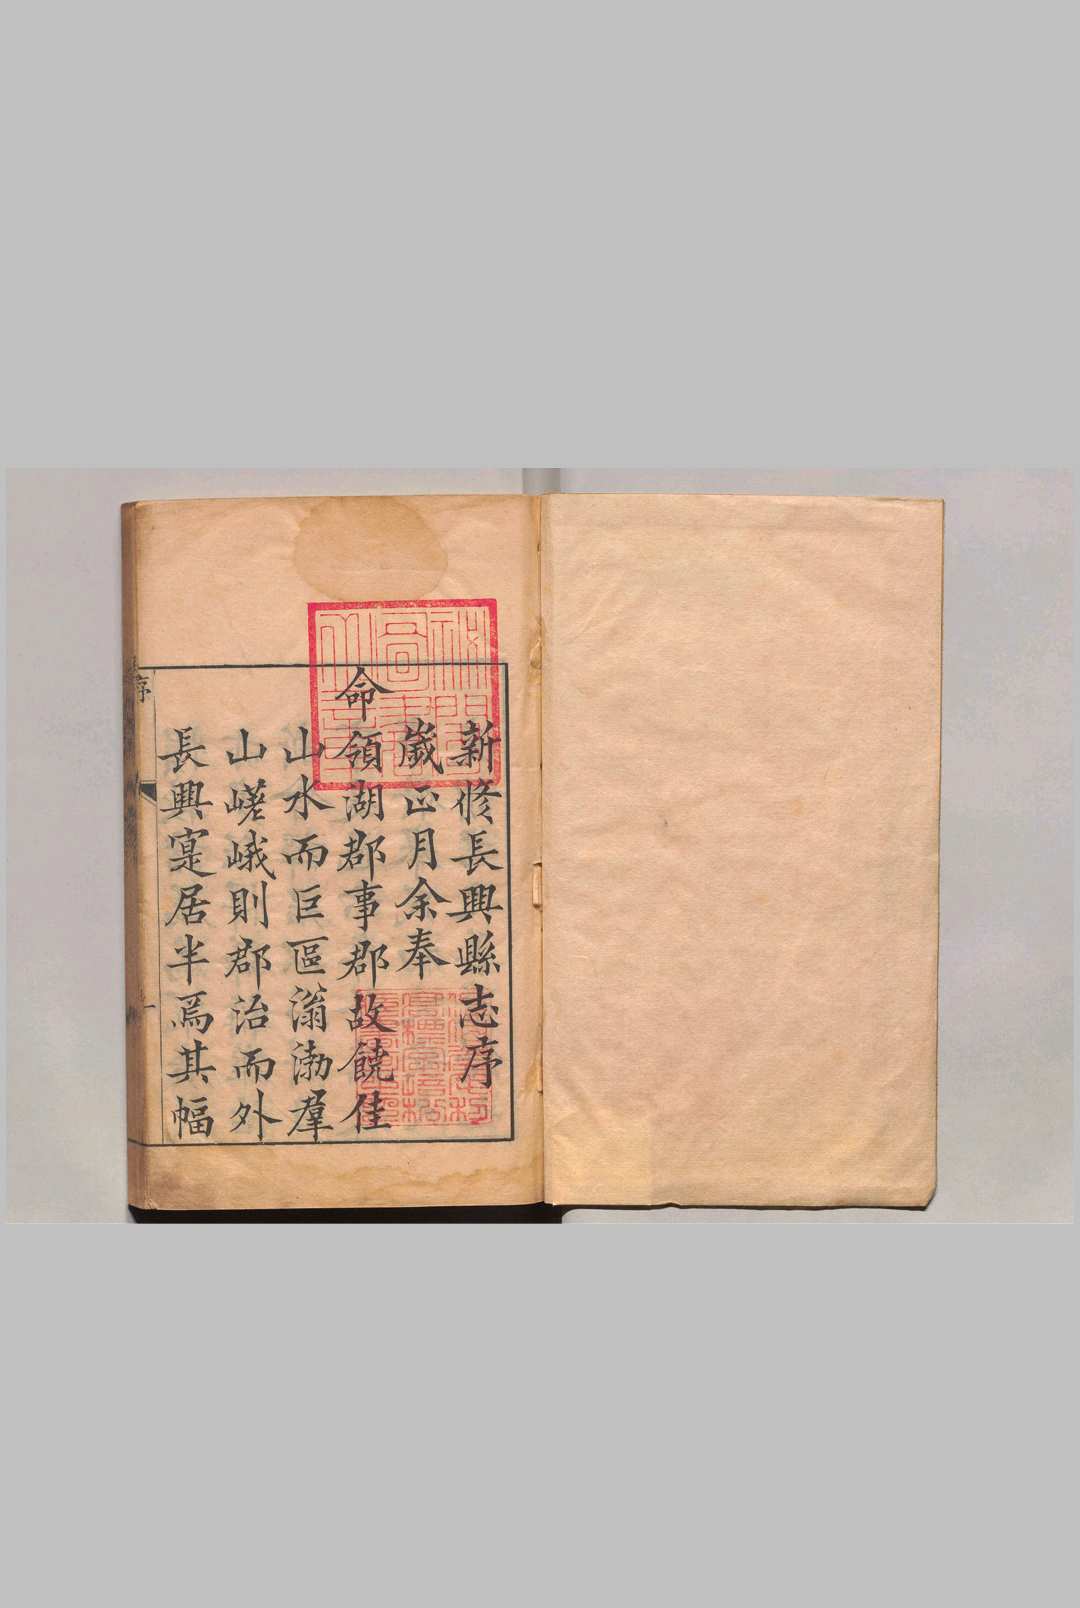 新修長興縣志序
歲正月余奉
命領湖郡事郡故饒佳
山水而巨區滃渤羣
山嵯峨則郡治而外
長興寔居半焉其幅
序
一